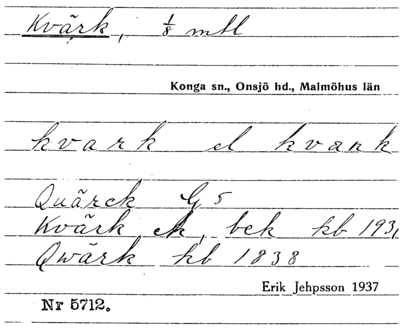 Kvärk, 1/8 mtl
Konga sn., Onsjö hd., Malmöhus län
kvark el kvank
Quärck G 5
Kvärk ek, bek kb 193
Qwärk kb 1838
Erik Jehpsson 1937
Nr 5712.